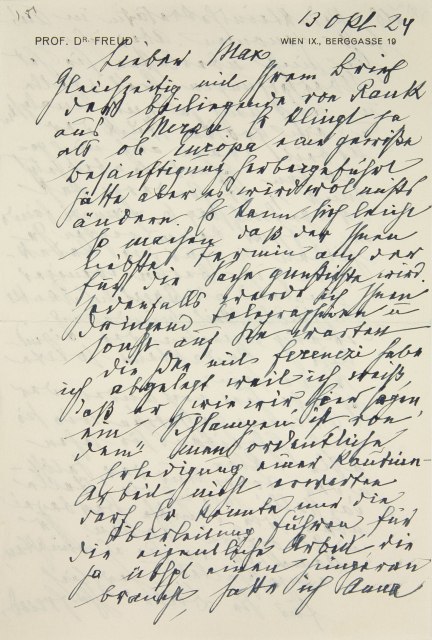 13 Okt. 24
PROF. DR. FREUD
WIEN IX., BERGGASSE 19
Lieber Max
Gleichzeitig mit Ihrem Brief
der beiliegende von Rank
aus Er klingt ja
als ob Europa eine gewisse
besänftigung herbeigeführt
hätte aber es wird wol nichts
ändern. Es kann sich leicht
so machen daß der Ihnen
liebste Termin auch der
für die Sache günstigste wird.
Jedenfalls werde ich Ihnen
dringend telegraphieren u
sonst auf Sie warten
die Idee mit Ferenczi habe
ich abgelegt weil ich weiß,
daß er, wie wir hier sagen,
ein Schlampen ist von
dem man ordentliche
Erledigung einer Routine-
Arbeit nicht erwarten
darf. Er könnte nur die
Überleitung führen, für
die eigentliche Arbeit, die
ja einen jüngeren
braucht, hatte ich Anna